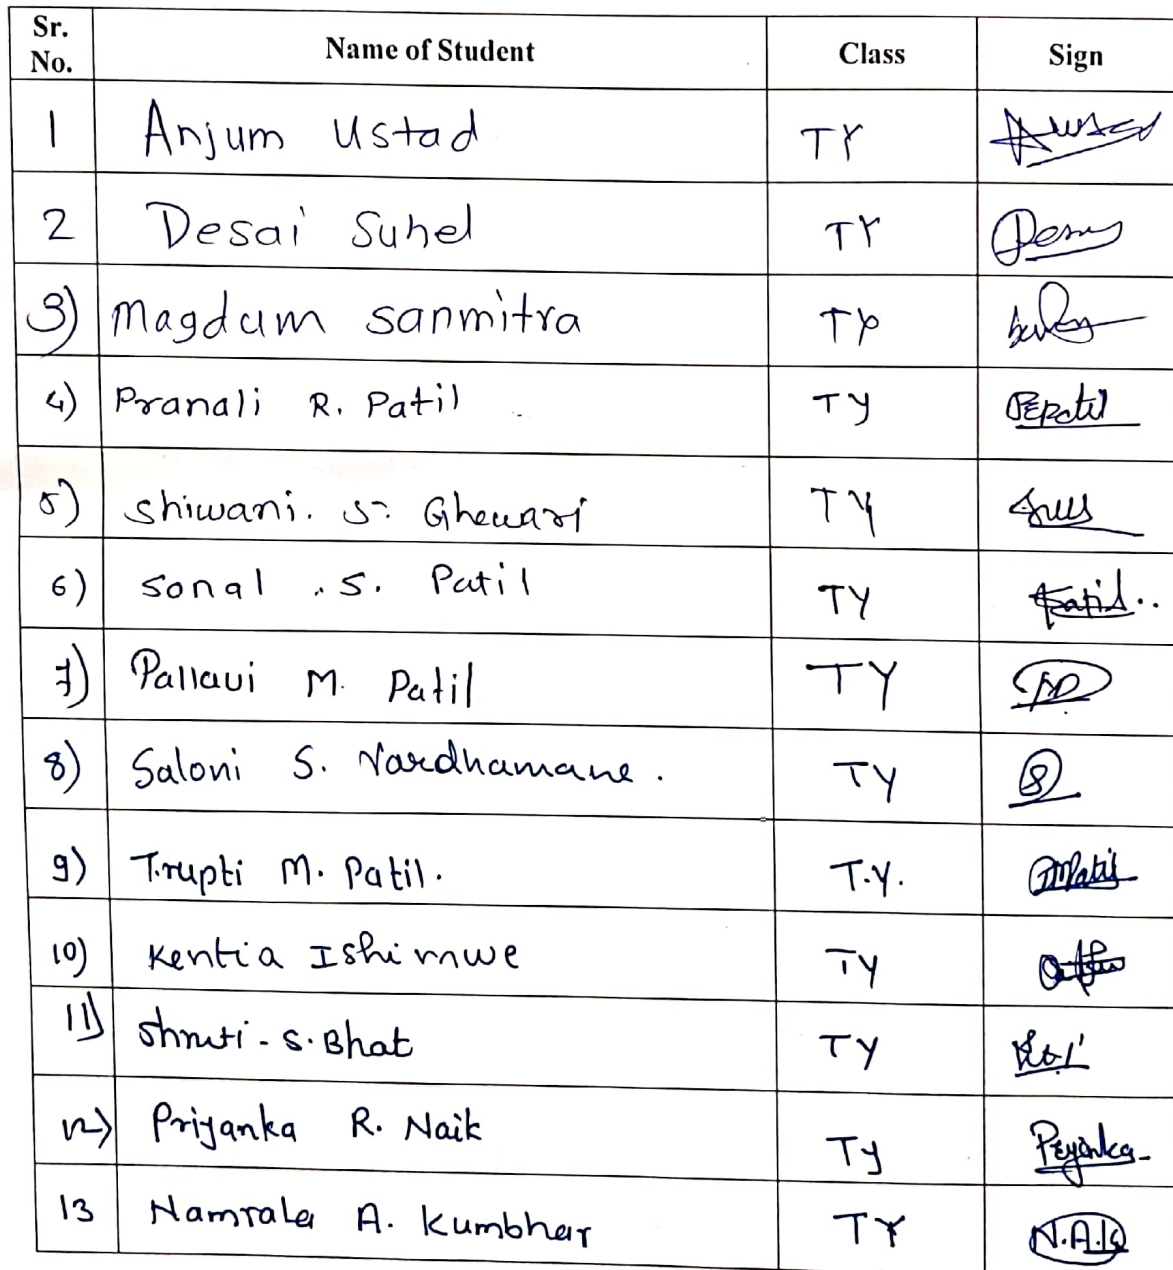 Sr. No. Name of Student Class Sign
1 Anjum Ustad TY
2 Desai Suhel TY
3) Magdum sanmitra TY
4) Pranali R. Patil TY PRPatil
5) Shiwani. S. Ghewari TY
6) Sonal .S. Patil TY
7) Pallavi M. Patil TY
8) Saloni S. Vardhamane. TY
9) Trupti M. Patil. T.Y.
10) Kentia Ishimwe TY
11) Shruti - S. Bhat TY
12) Priyanka R. Naik TY Priyanka
13 Namrata A. Kumbhar TY